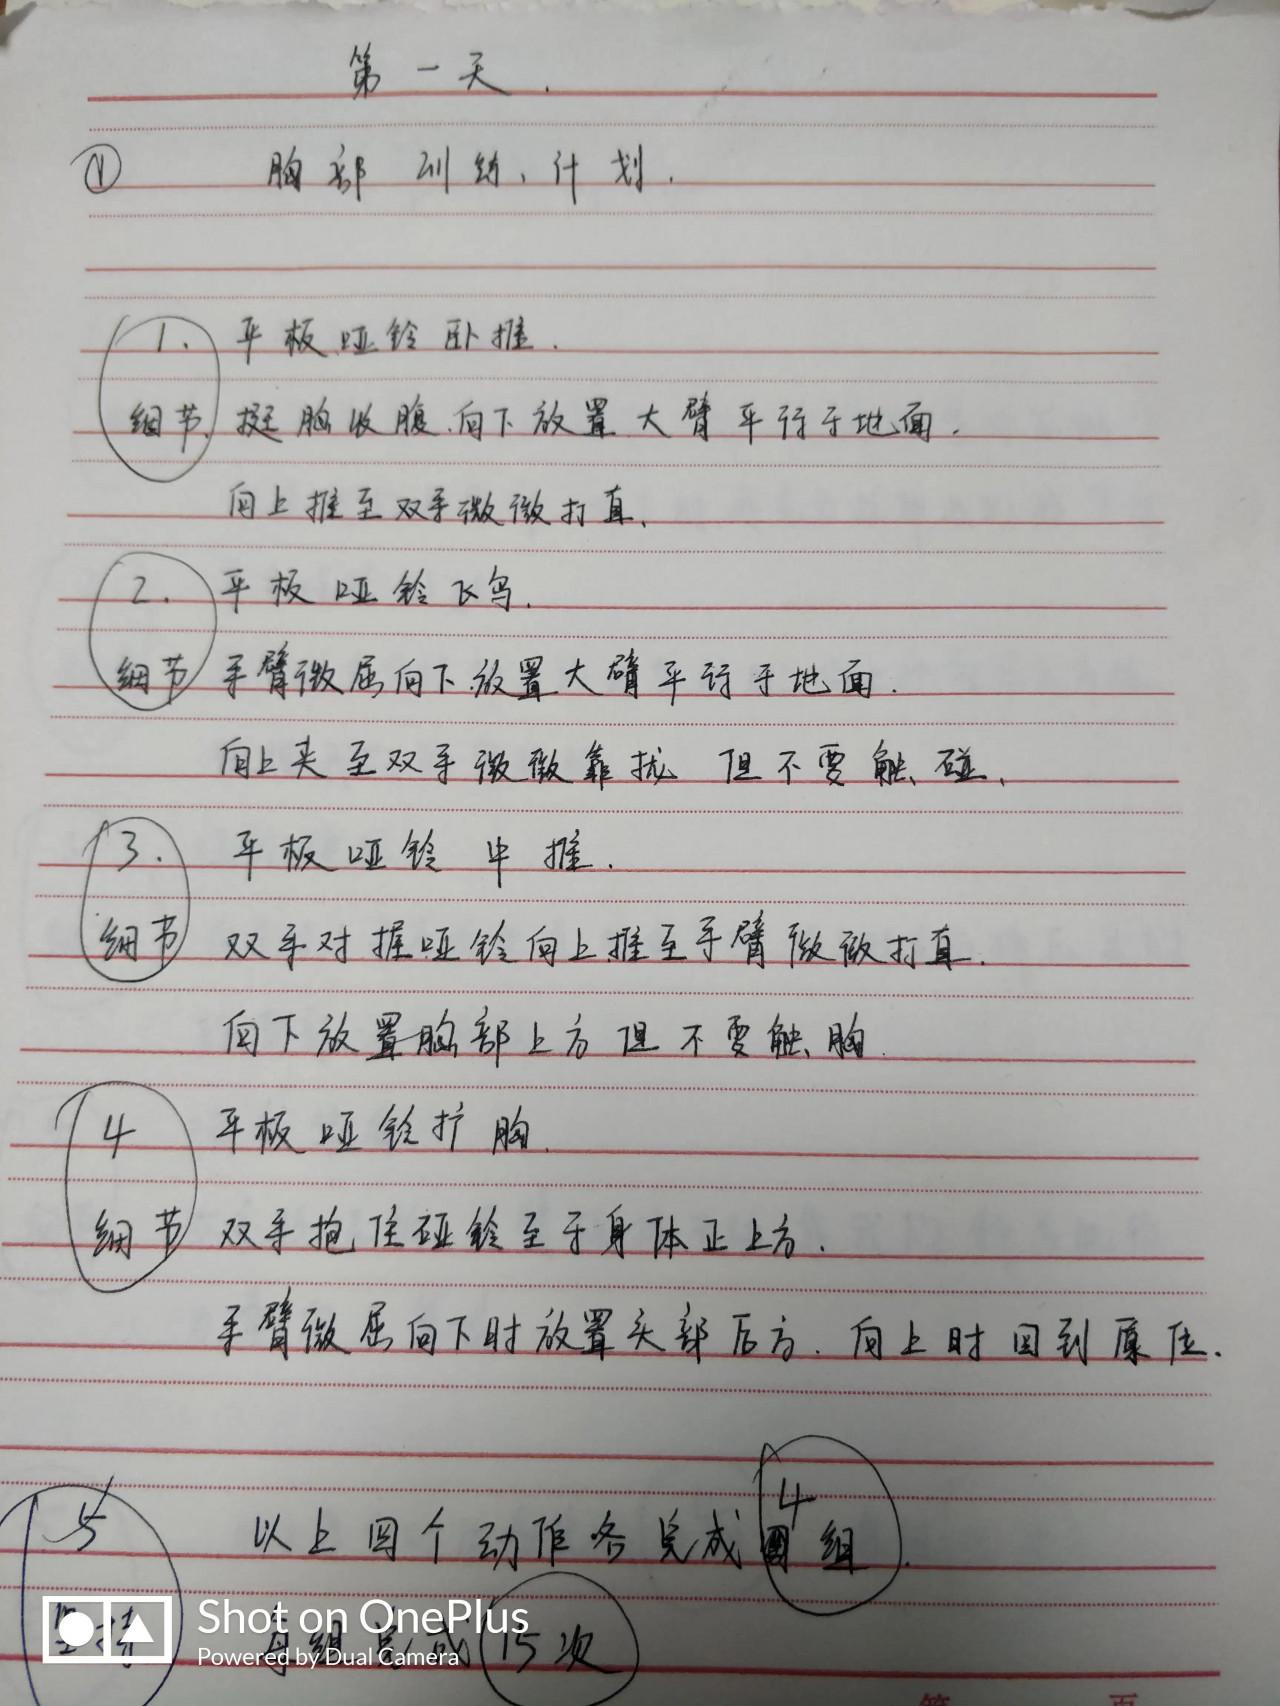 第一天.
① 胸部训练计划.
1. 平板哑铃卧推.
细节. 挺胸收腹.向下放置大臂平行于地面.
向上推至双手微微打直.
2. 平板哑铃飞鸟.
细节 手臂微屈向下放置大臂平行于地面.
向上夹至双手微微靠拢 但不要触碰.
3. 平板哑铃中推.
细节 双手对握哑铃向上推至手臂微微打直.
向下放置胸部上方但不要触胸.
4 平板哑铃扩胸.
细节 双手抱住哑铃至于身体正上方.
手臂微屈向下时放置头部后方.向上时回到原位.
5 以上四个动作各完成4组.
坚持 每组完成15次
Shot on OnePlus
Powered by Dual Camera
第 页